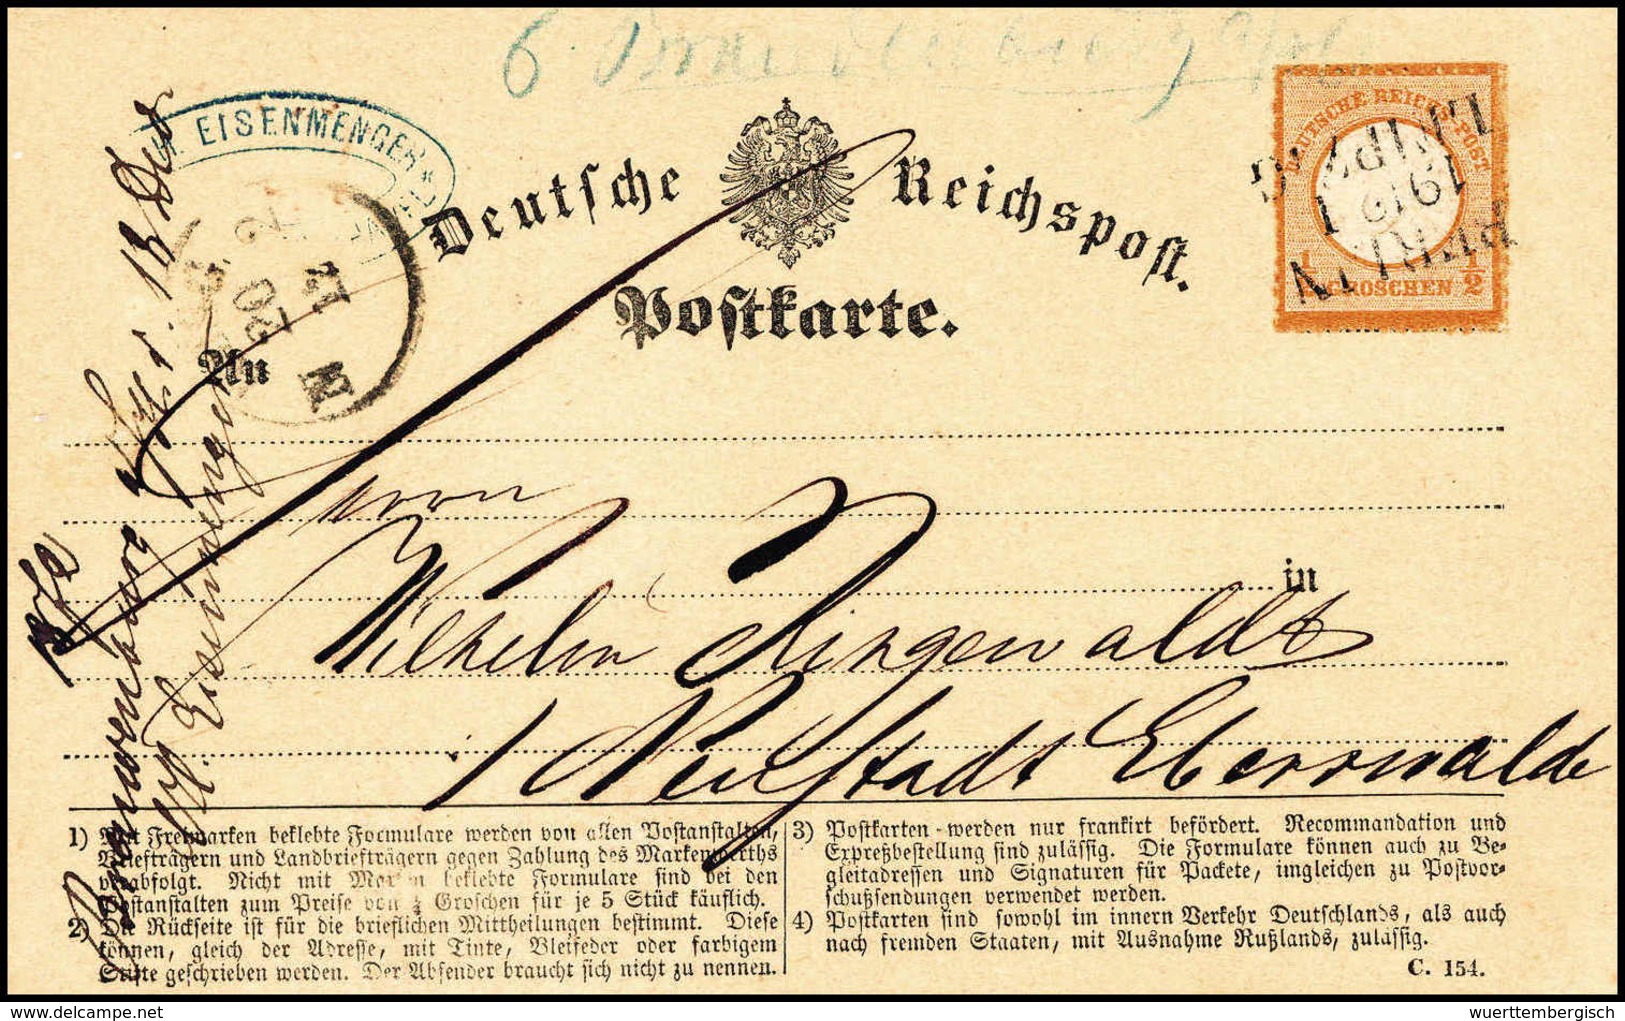 6
EISENMENGER
Deutsche Reichspost.
Postkarte.
DEUTSCHE REICHS-POST
1/2 GROSCHEN 1/2
LEIPZIG
19 12 I
An
20
12
Herrn
in
Wilhelm Ringewaldt
Neustadt Eberswalde
Eisenmenger
1) Mit Freimarken beklebte Formulare werden von allen Postanstalten,
Briefträgern und Landbriefträgern gegen Zahlung des Markenwerths
verabfolgt. Nicht mit Marken beklebte Formulare sind bei den
Postanstalten zum Preise von ½ Groschen für je 5 Stück käuflich.
2) Die Rückseite ist für die brieflichen Mittheilungen bestimmt. Diese
können, gleich der Adresse, mit Tinte, Bleifeder oder farbigem
Stifte geschrieben werden. Der Absender braucht sich nicht zu nennen.
3) Postkarten werden nur frankirt befördert. Recommandation und
Expreßbestellung sind zulässig. Die Formulare können auch zu Be-
gleitadressen und Signaturen für Packete, imgleichen zu Postvor-
schußsendungen verwendet werden.
4) Postkarten sind sowohl im innern Verkehr Deutschlands, als auch
nach fremden Staaten, mit Ausnahme Rußlands, zulässig.
C. 154.
wuerttembergisch